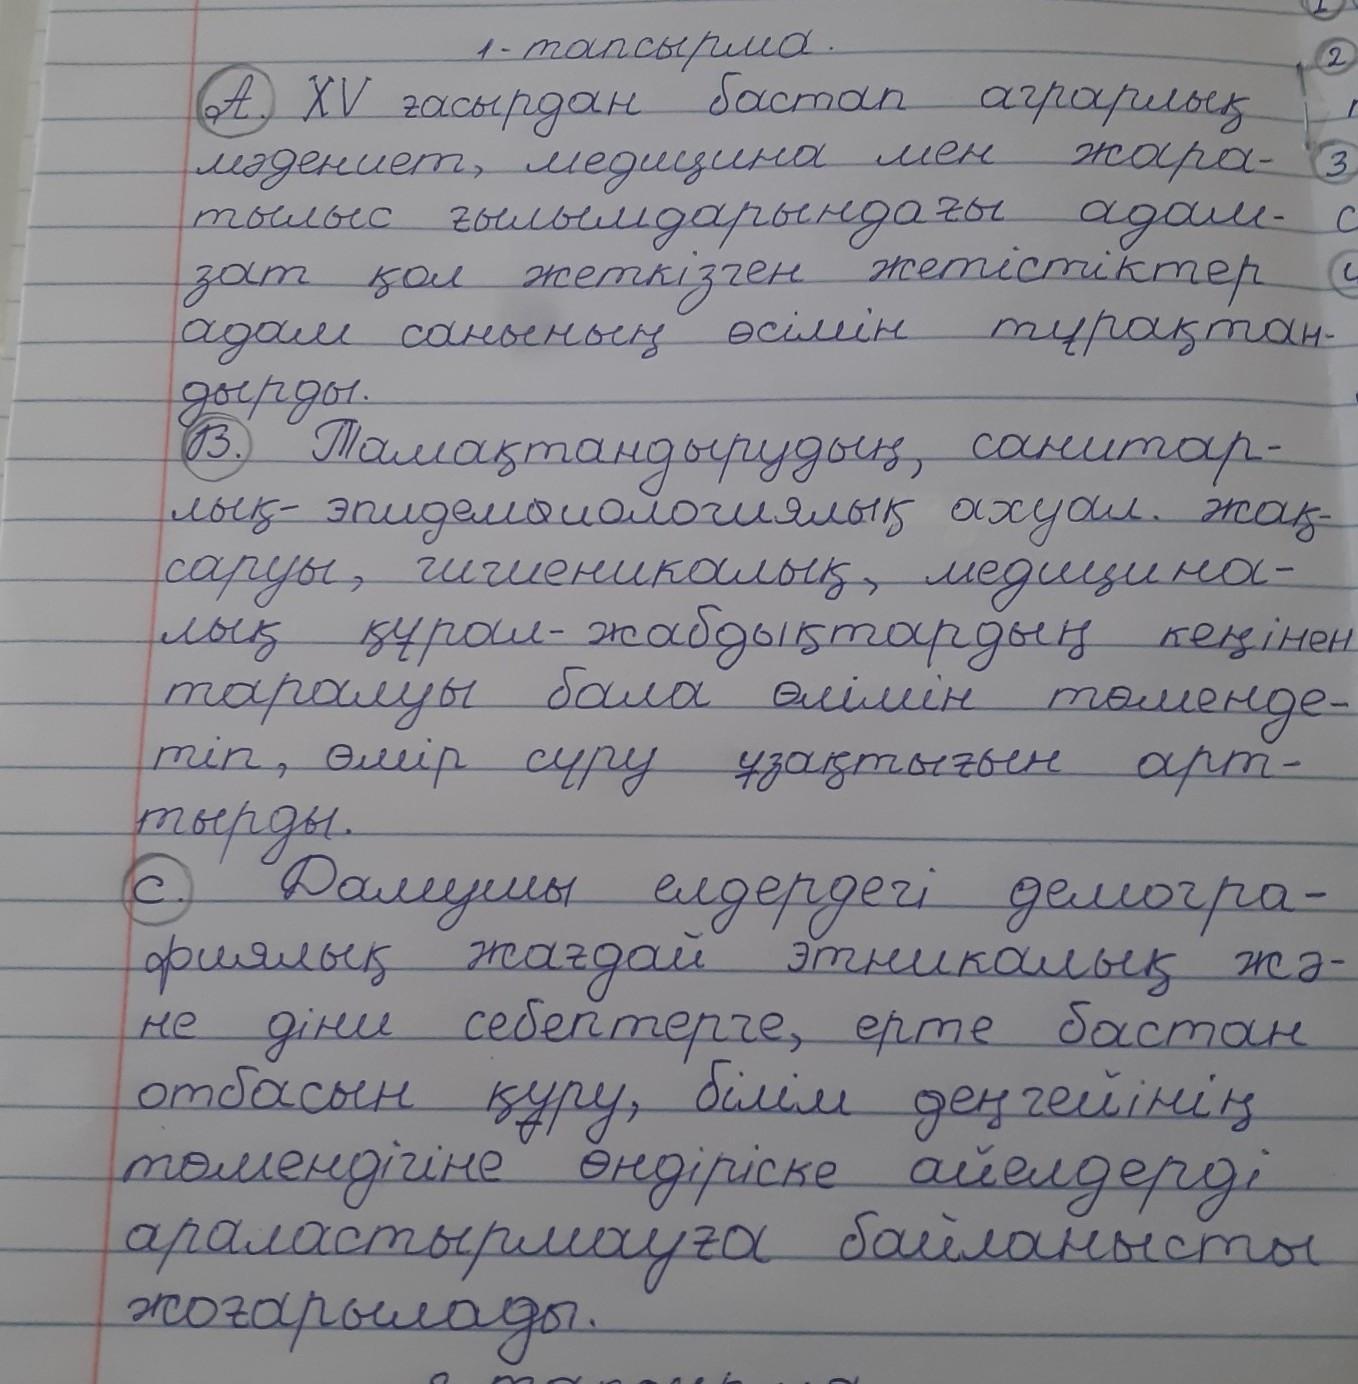 1-тапсырма.
A. XV ғасырдан бастап аграрлық
мәдениет, медицина мен жара-
тылыс ғылымдарындағы адам-
зат қол жеткізген жетістіктер
адам санының өсімін тұрақтан-
дырды.
B. Тамақтандырудың, санитар-
лық-эпидемиологиялық ахуал. жақ-
саруы, гигиеникалық, медицина-
лық құрал-жабдықтардың кеңінен
таралуы бала өлімін төменде-
тіп, өмір сүру ұзақтығын арт-
тырды.
C. Дамушы елдердегі демогра-
фиялық жағдай этникалық жә-
не діни себептерге, ерте бастан
отбасын құру, білім деңгейінің
төмендігіне өндіріске айелдерді
араластырмауға байланысты
жоғарылады.
1
2
3
с
4